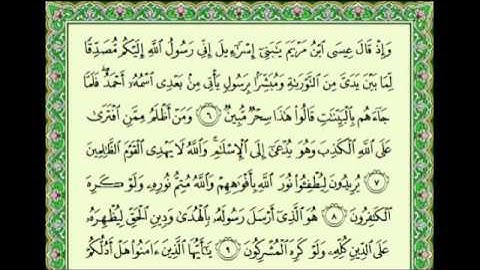 وَإِذۡ قَالَ عِيسَى ٱبۡنُ مَرۡيَمَ يَٰبَنِيٓ إِسۡرَٰٓءِيلَ إِنِّي رَسُولُ ٱللَّهِ إِلَيۡكُم مُّصَدِّقٗا
لِّمَا بَيۡنَ يَدَيَّ مِنَ ٱلتَّوۡرَىٰةِ وَمُبَشِّرَۢا بِرَسُولٖ يَأۡتِي مِنۢ بَعۡدِي ٱسۡمُهُۥٓ أَحۡمَدُۖ فَلَمَّا
جَآءَهُم بِٱلۡبَيِّنَٰتِ قَالُواْ هَٰذَا سِحۡرٞ مُّبِينٞ ٦ وَمَنۡ أَظۡلَمُ مِمَّنِ ٱفۡتَرَىٰ
عَلَى ٱللَّهِ ٱلۡكَذِبَ وَهُوَ يُدۡعَىٰٓ إِلَى ٱلۡإِسۡلَٰمِۚ وَٱللَّهُ لَا يَهۡدِي ٱلۡقَوۡمَ ٱلظَّٰلِمِينَ
٧ يُرِيدُونَ لِيُطۡفِـُٔواْ نُورَ ٱللَّهِ بِأَفۡوَٰهِهِمۡ وَٱللَّهُ مُتِمُّ نُورِهِۦ وَلَوۡ كَرِهَ
ٱلۡكَٰفِرُونَ ٨ هُوَ ٱلَّذِيٓ أَرۡسَلَ رَسُولَهُۥ بِٱلۡهُدَىٰ وَدِينِ ٱلۡحَقِّ لِيُظۡهِرَهُۥ
عَلَى ٱلدِّينِ كُلِّهِۦ وَلَوۡ كَرِهَ ٱلۡمُشۡرِكُونَ ٩ يَٰٓأَيُّهَا ٱلَّذِينَ ءَامَنُواْ هَلۡ أَدُلُّكُمۡ